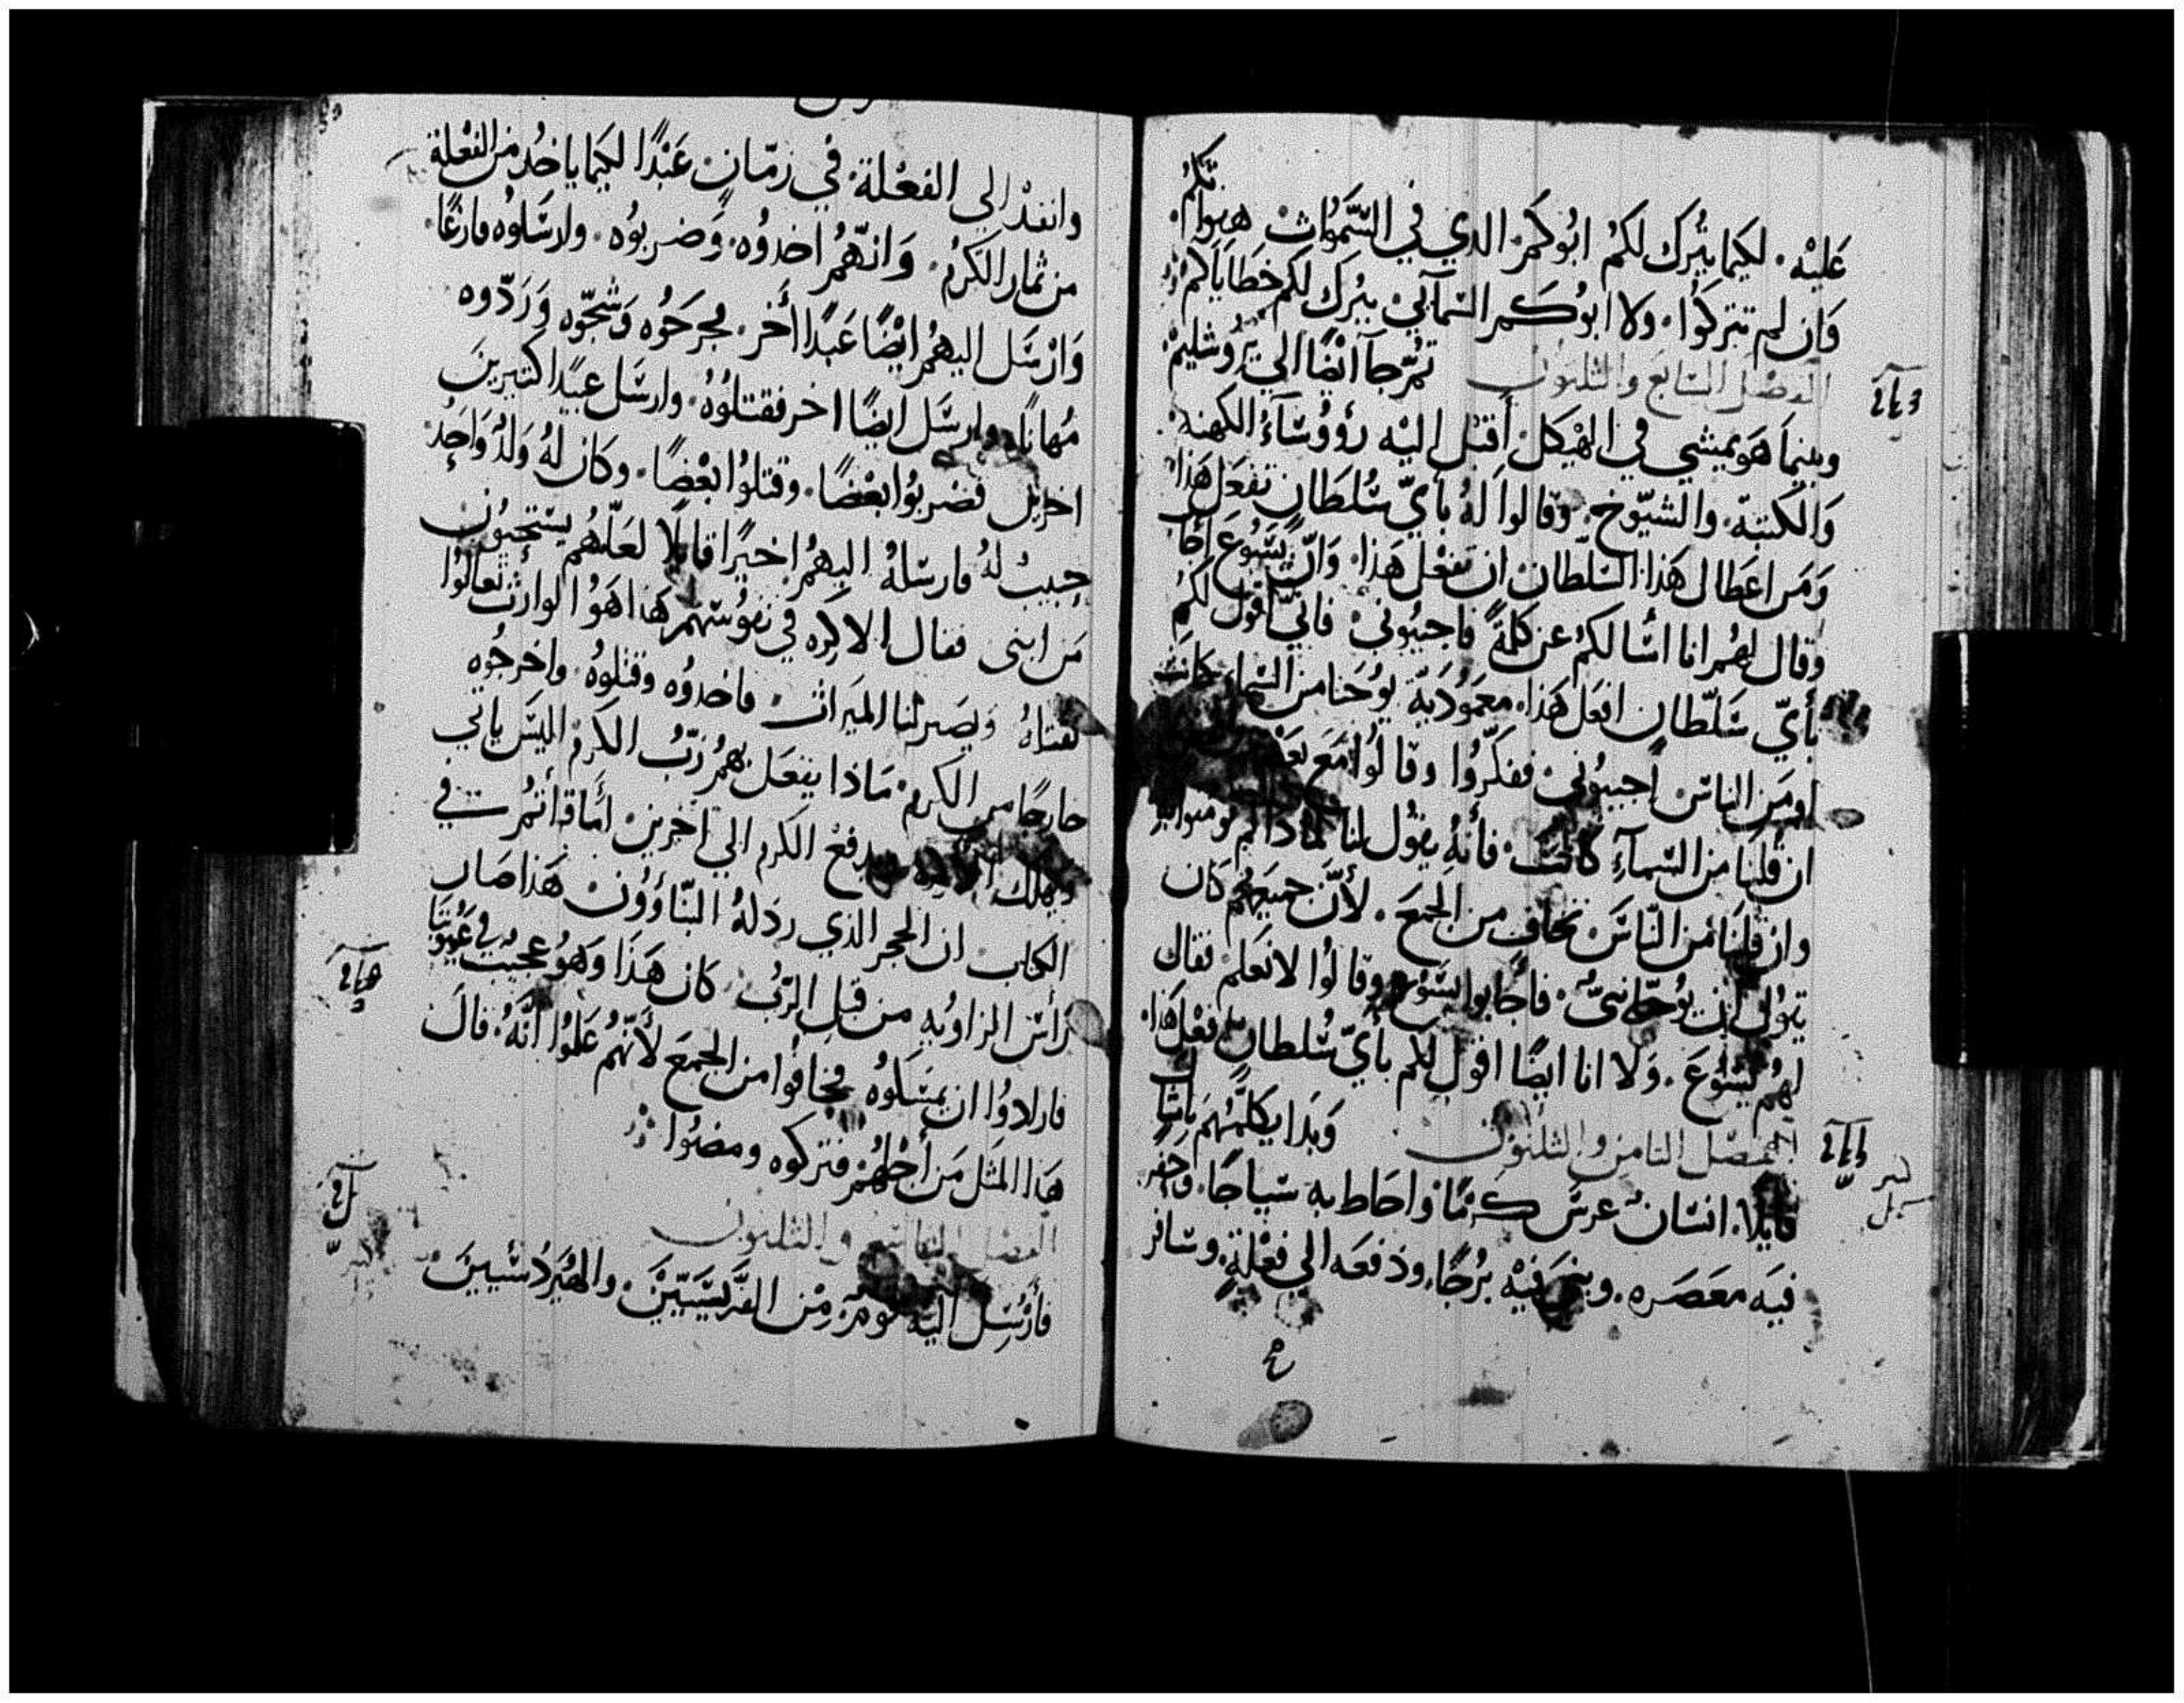 عَليْه. لكيما يتُرك لكمُ ابُوكمر الدي في السَّموُات هبواتكمُ.
وَان لم تتركوُا. ولا ابوُكمر السَّمآيي يترك لكم خطَاياكمْ
الفصْل السَّابع والثلثون تمُرّ جآ ايضًا الي يرُوشليمْ
وبينمَا هوَ يمشي في الهْيكل أقبل اليْه رؤوُسَآءُ الكهنة
وَالكتبة. والشيّوخ. وَقالوا لهُ بأيّ سُلطَان تفعَل هَذا
وَمَن اعطاك هَذا السّلطان ان تفعْل هَذا. وَانّ يَسُوعَ أجَاب
وقال لهمُر انا اسْالكمُ عن كلمةً فاجيبوُني فانّي أقول لكمُ
بأيّ سَلطان افعَل هَذا. معموُديَّة يوُحَنا من السَّما كانَت
اومَن الناسْ اجيبوُني ففكّروُا وقالوُا مَع
ان قلنا من السَّمآءِ كانت فأنهُ يقوُل لنا لماذا لم تومنوا بهِ
وان قلنَا مَن النَّاسَ نخاف من الجمعَ. لأنّ جميعَهُم كان
يقوُل ان يوُحنا نبيٌ. فأجَابوا يسَوُع وقالوُا لا نعَلم فقال
لهمُ يسَوُعَ. وَلا انا ايضًا اقول لكم بأيّ سُلطان افعْل هَذا.
الفصْل الثامن والثلثون وَبَدا يكلّمُهمَ بامثال
قايلًا. انسَانٌ غرسَ كرمًا واحَاط به سَياجًا. وَحفر
فيَه معصَره. وبنى فيْه برُجًا. ودفعَه الي فعْلةٍ. وسافر
وانفذ الي الفعْلة. في زمّان عَبْدًا لكيما ياخدُ من الفعْلة
من ثمار الكرمُ. وَانهّمُر اخدوُه. وَضربوُه. وارسَلوُه فارغًا.
وَارْسَل اليهمُر ايْضًا عَبدًا أخر. فجرحَوُه وَشجّوه وَرَدّوه
مُهانًا. وارسَل ايضًا اخر فقتلوُهُ. وارسَل عبيدًا كتيرينَ
اخرين فضربوُا بعْضًا. وقتلوُا بعْضًا. وكان لهُ وَلدٌ وَاحدٌ
حبيبٌ لهُ فارسَلهُ اليهمُ اخيرًا قايلًا لعَلّهُم يستحيوُن
مَن ابنى فقال الاكره في نفوُسَهمر هذا هوُ الوارث تعالوُا
نقتلهُ وَيصَير لنا الميَرات فاخدوُه وقتلوُهُ. واخرجوُه
خارجًا من الكرم. مَاذا يفعَل بهمُ رَبُّ الكرم اليسَ ياتي
ويهلك ويدفع الكرم الي اخرين. أمَا قرأتمُر في
الكتاب ان الحجر الذي ردلهُ البَنّاؤوُن هَذا صَار
رَأسَ الزاويه من قبل الرّبُ. كان هَذَا وَهوُ عجيب في عَيوُننَا
فارادوُا ان يمسَكوُه فخافوُا من الجمعَ لأنّهمُ عَلموُا أنّهُ قال
هَذا المَثَل مَن أجْلهُمْ فتركوه ومضوُا
الفصْل التاسع والثلثون
فأرْسَل اليْه قومٌ مِنْ الفَرّيسَيّينَ. والهيَردُسَيينَ